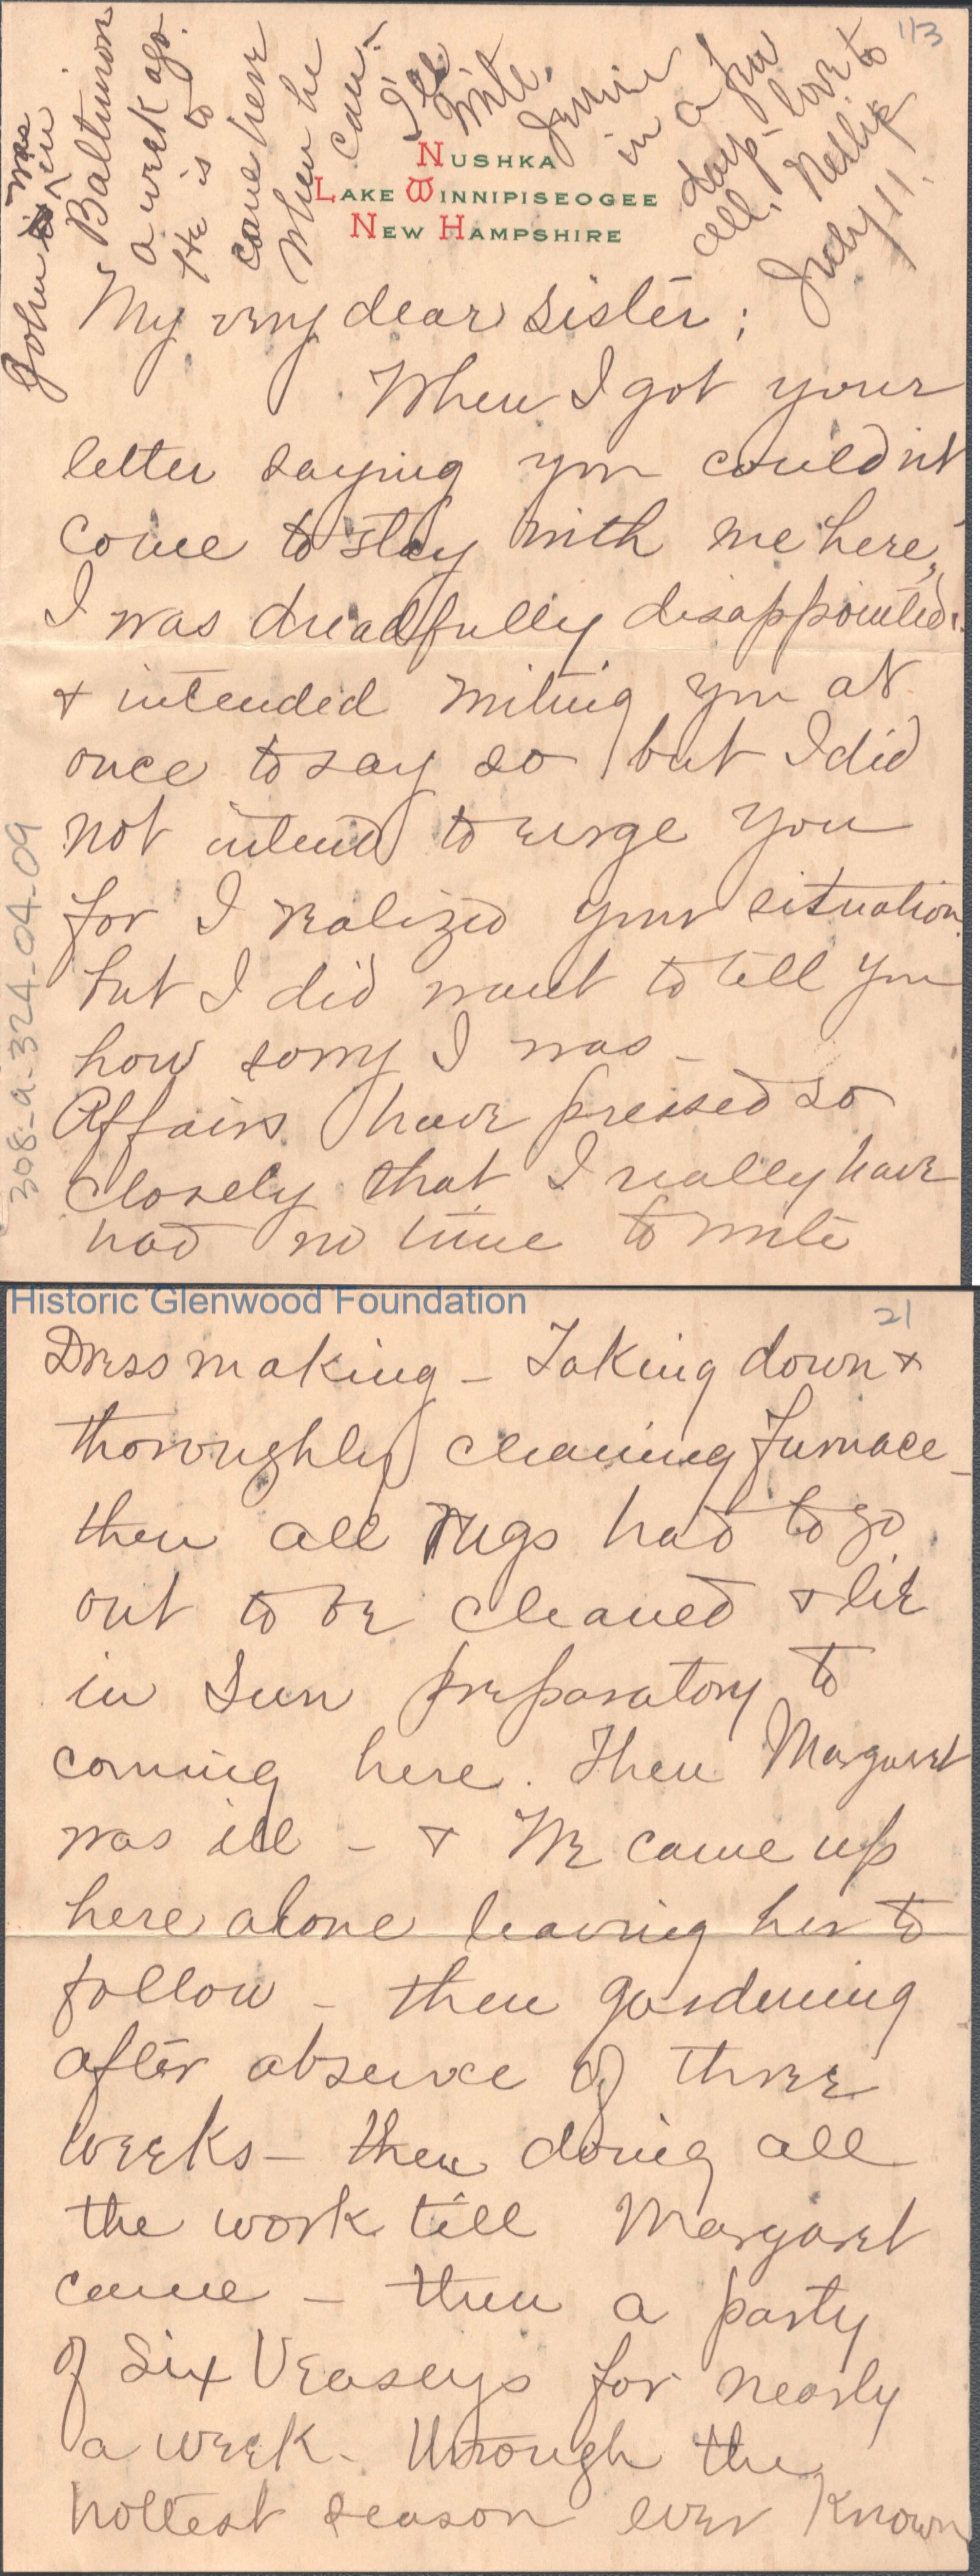 John was in
Baltimore
a week ago.
He is to
come here
when he
can.
I'll
write
Jennie
in a few
days. love to
all, Nellie
113
NUSHKA
LAKE WINNIPISEOGEE
NEW HAMPSHIRE
July 11.
My very dear sister;
When I got your
letter saying you couldn't
come to stay with me here,
I was dreadfully disappointed.
& intended writing you at
once to say so but I did
not intend to urge you
for I realized your situation.
but I did want to tell you
how sorry I was -
Affairs have pressed so
closely that I really have
had no time to write
308-a-324-04-09
Historic Glenwood Foundation
21
Dress making - Taking down &
thoroughly cleaning furnace -
then all rugs had to go
out to be cleaned & lie
in Sun preparatory to
coming here. Then Margaret
was ill - & We came up
here alone leaving her to
follow - then gardening
after absence of three
weeks - then doing all
the work till Margaret
came - then a party
of Six Veaseys for nearly
a week - through the
hottest season ever known